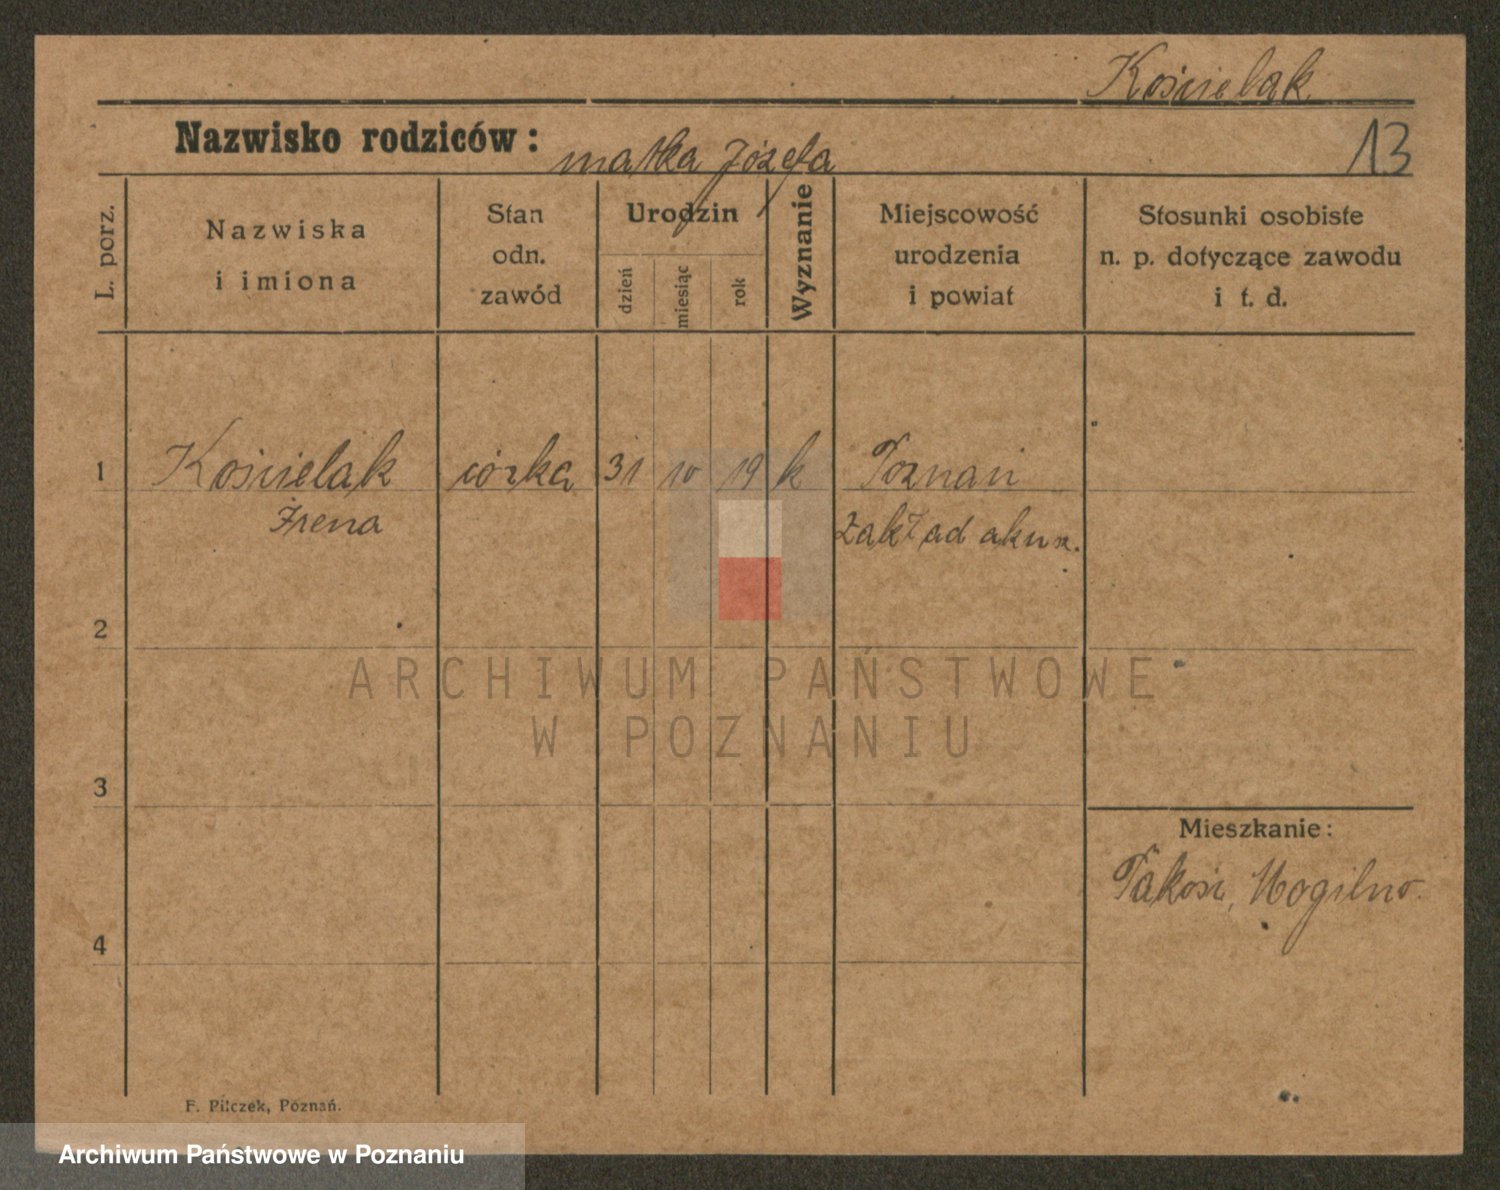 Kościelak
Nazwisko rodziców: matka Józefa
13
L. porz.
Nazwiska
i imiona
Stan
odn.
zawód
Urodzin
dzień
miesiąc
rok
Wyznanie
Miejscowość
urodzenia
i powiat
Stosunki osobiste
n. p. dotyczące zawodu
i t. d.
1 Kościelak córka 31 10 19 k Poznań
Irena Zakład akusz.
2
ARCHIWUM PAŃSTWOWE
W POZNANIU
3
Mieszkanie:
Pakość, Mogilno.
4
F. Pilczek, Poznań.
Archiwum Państwowe w Poznaniu